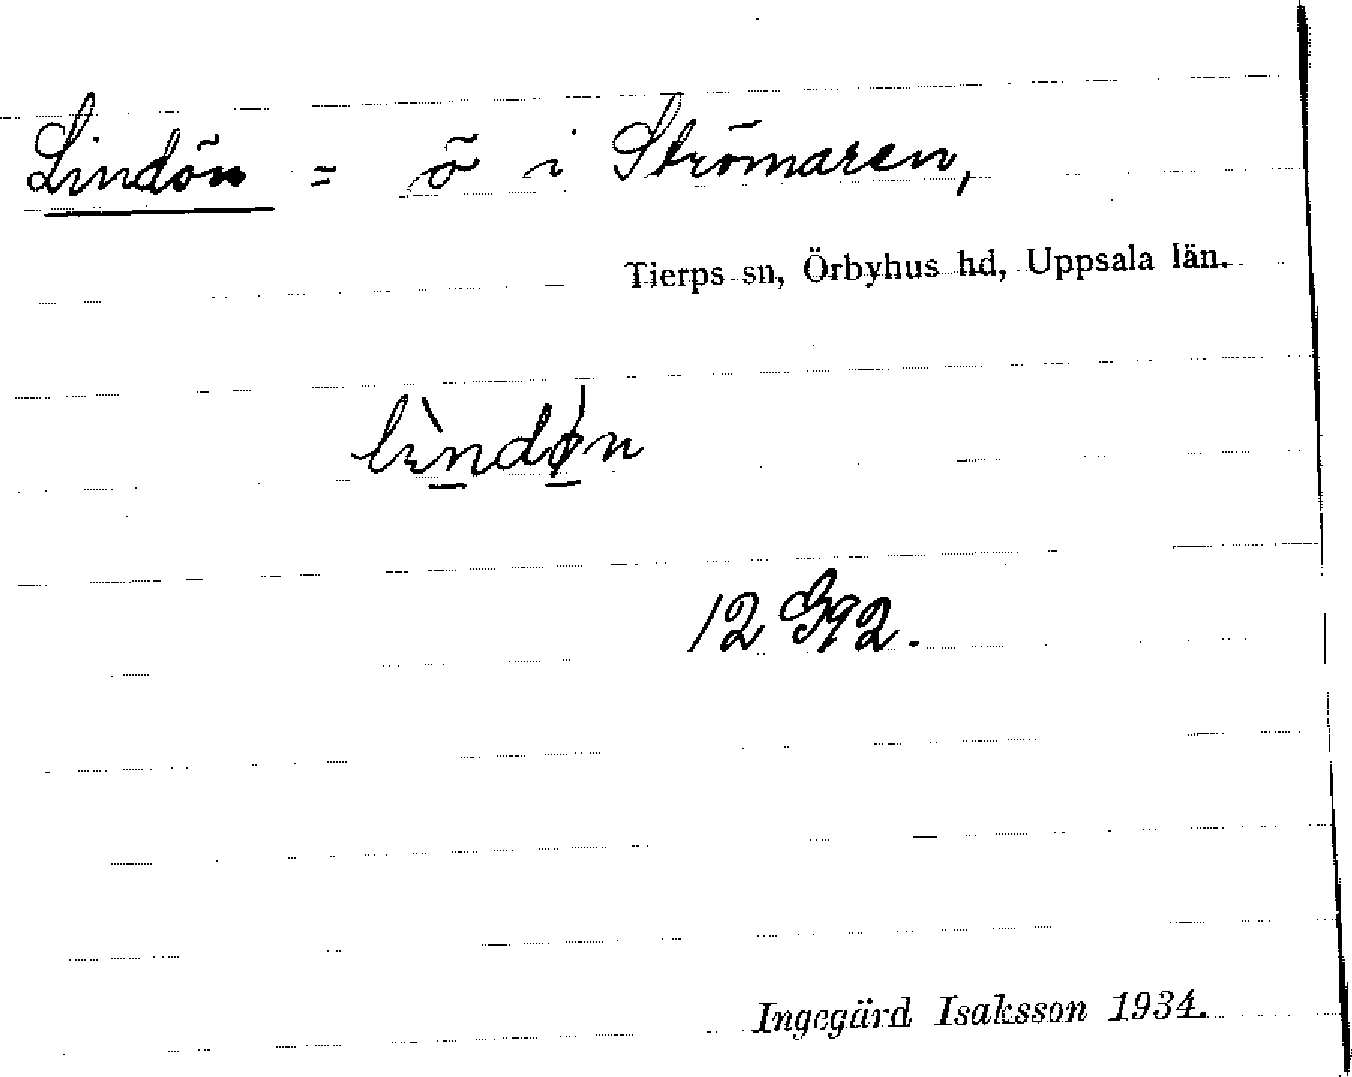 Lindön = ö i Strömaren,
Tierps sn, Örbyhus hd, Uppsala län.
lìndøn
12 G92.
Ingegärd Isaksson 1934.